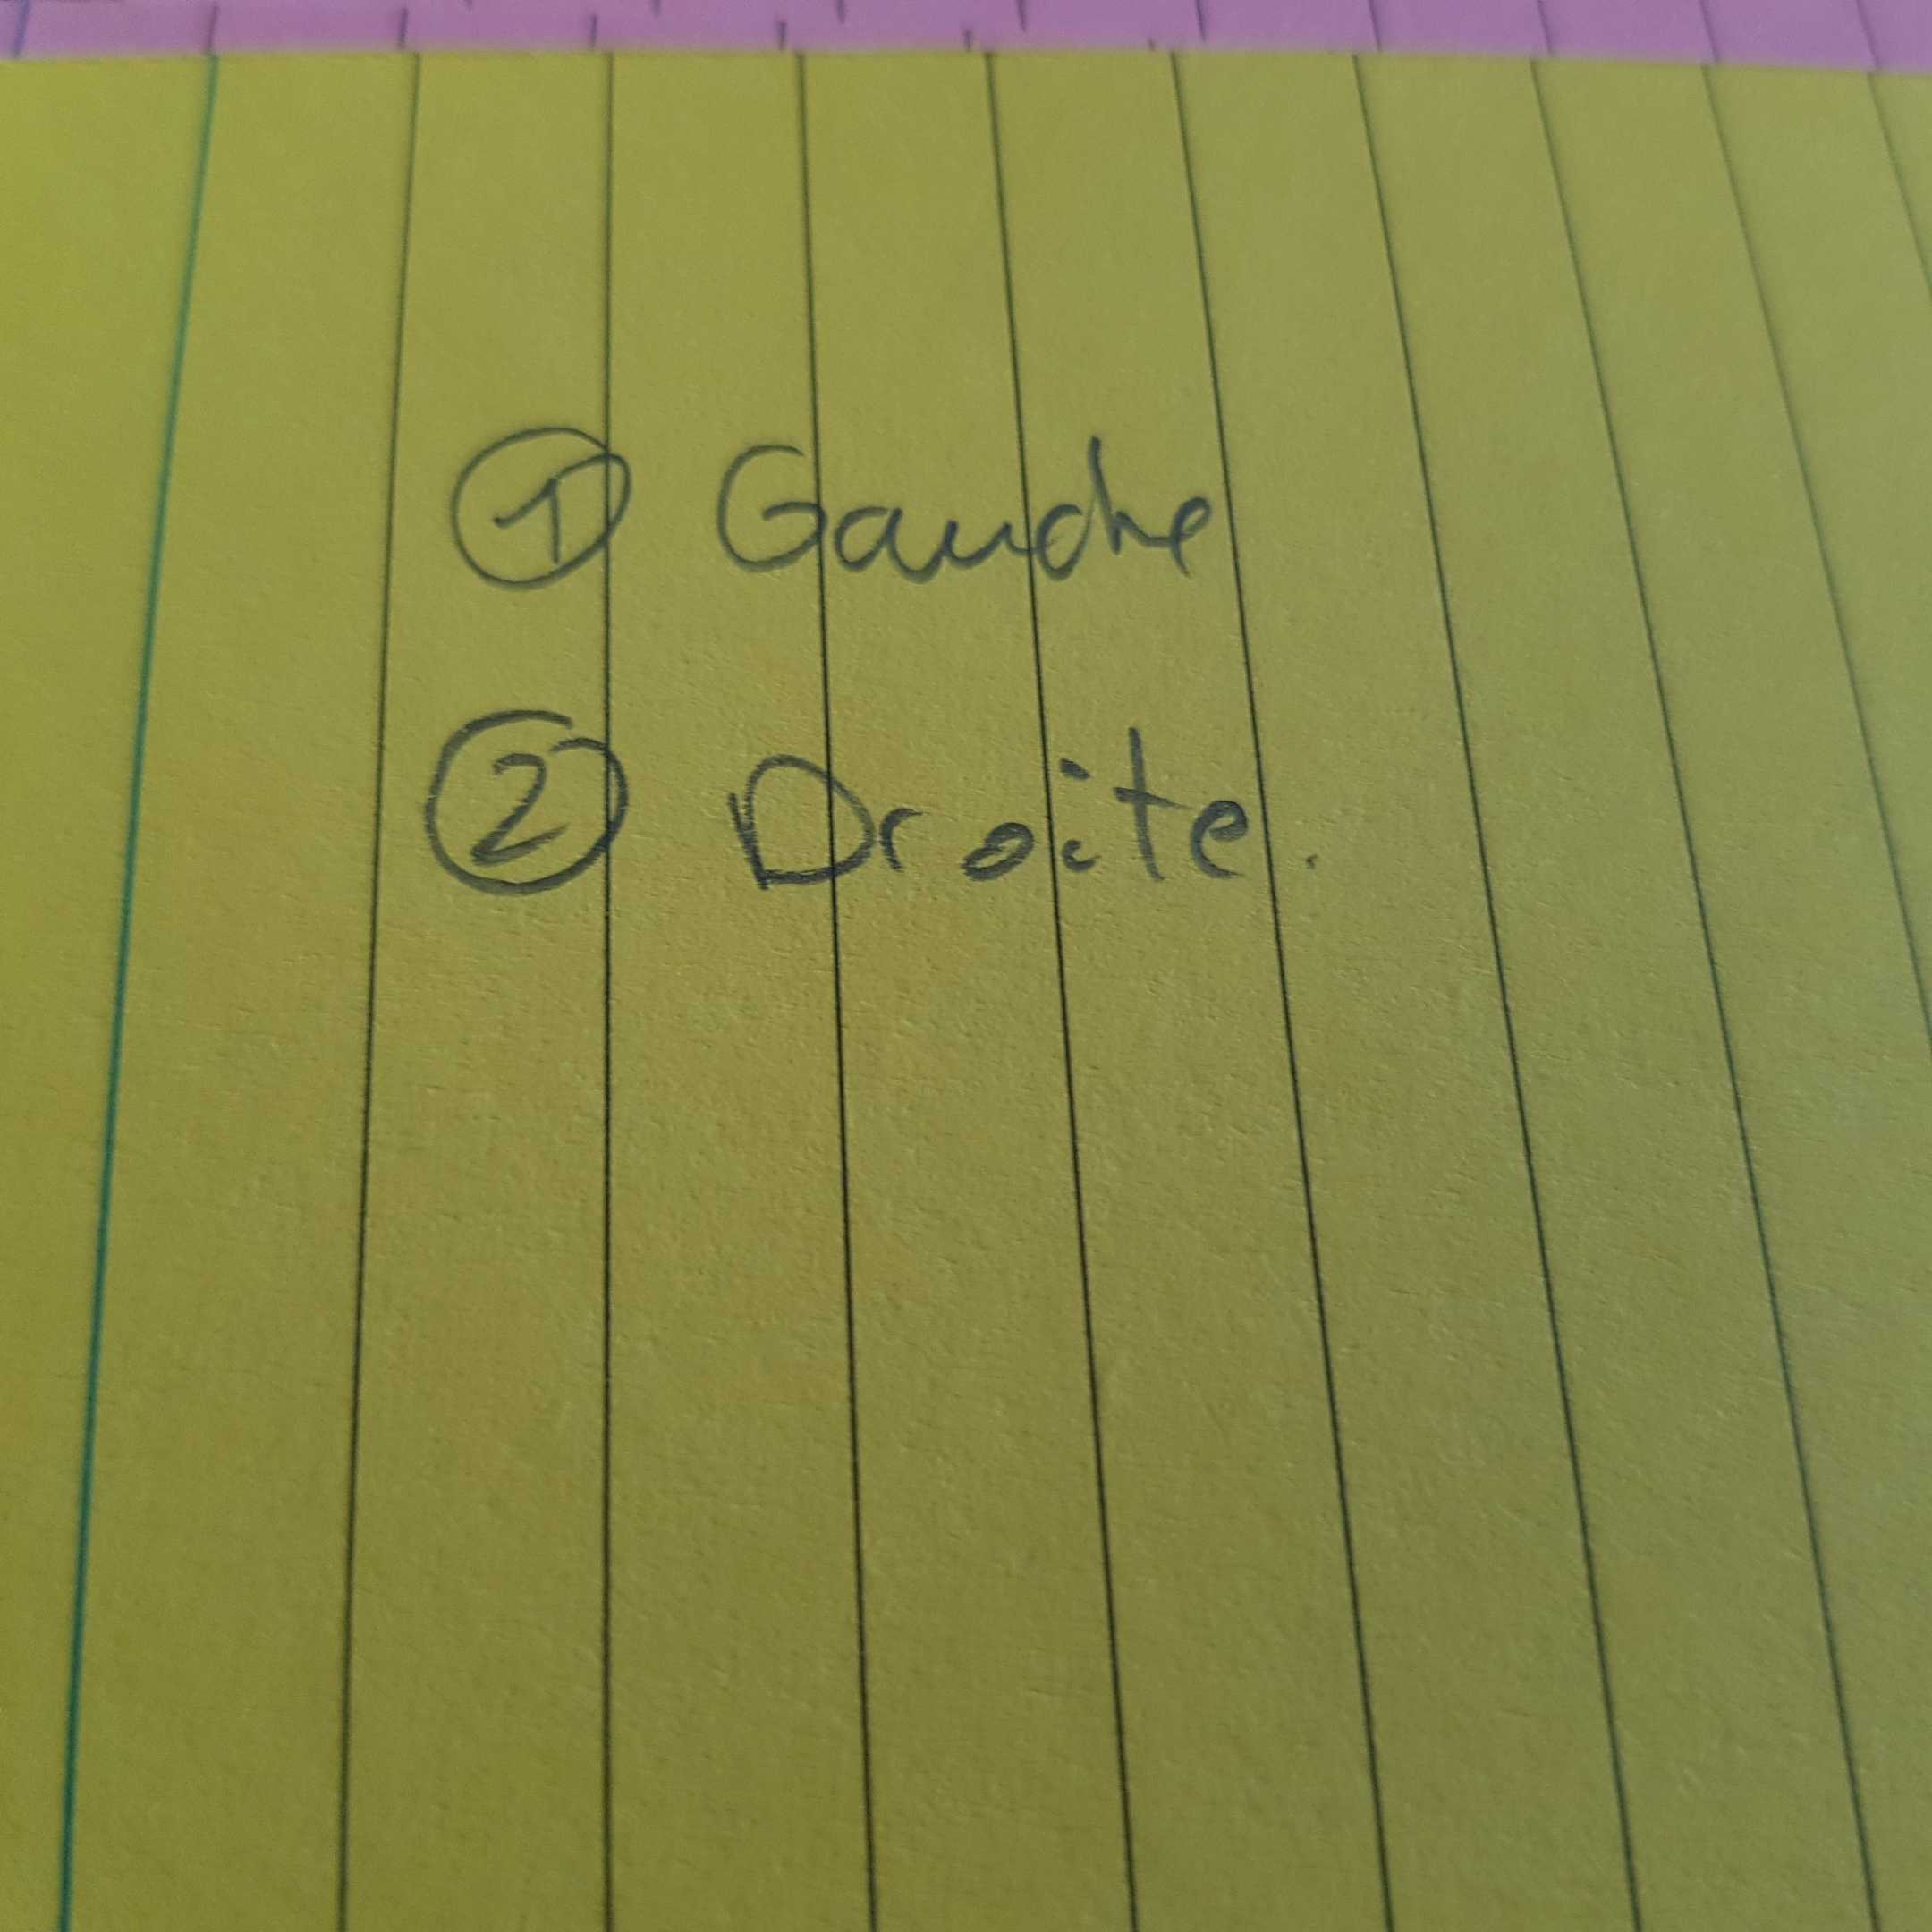 ① Gauche
② Droite.